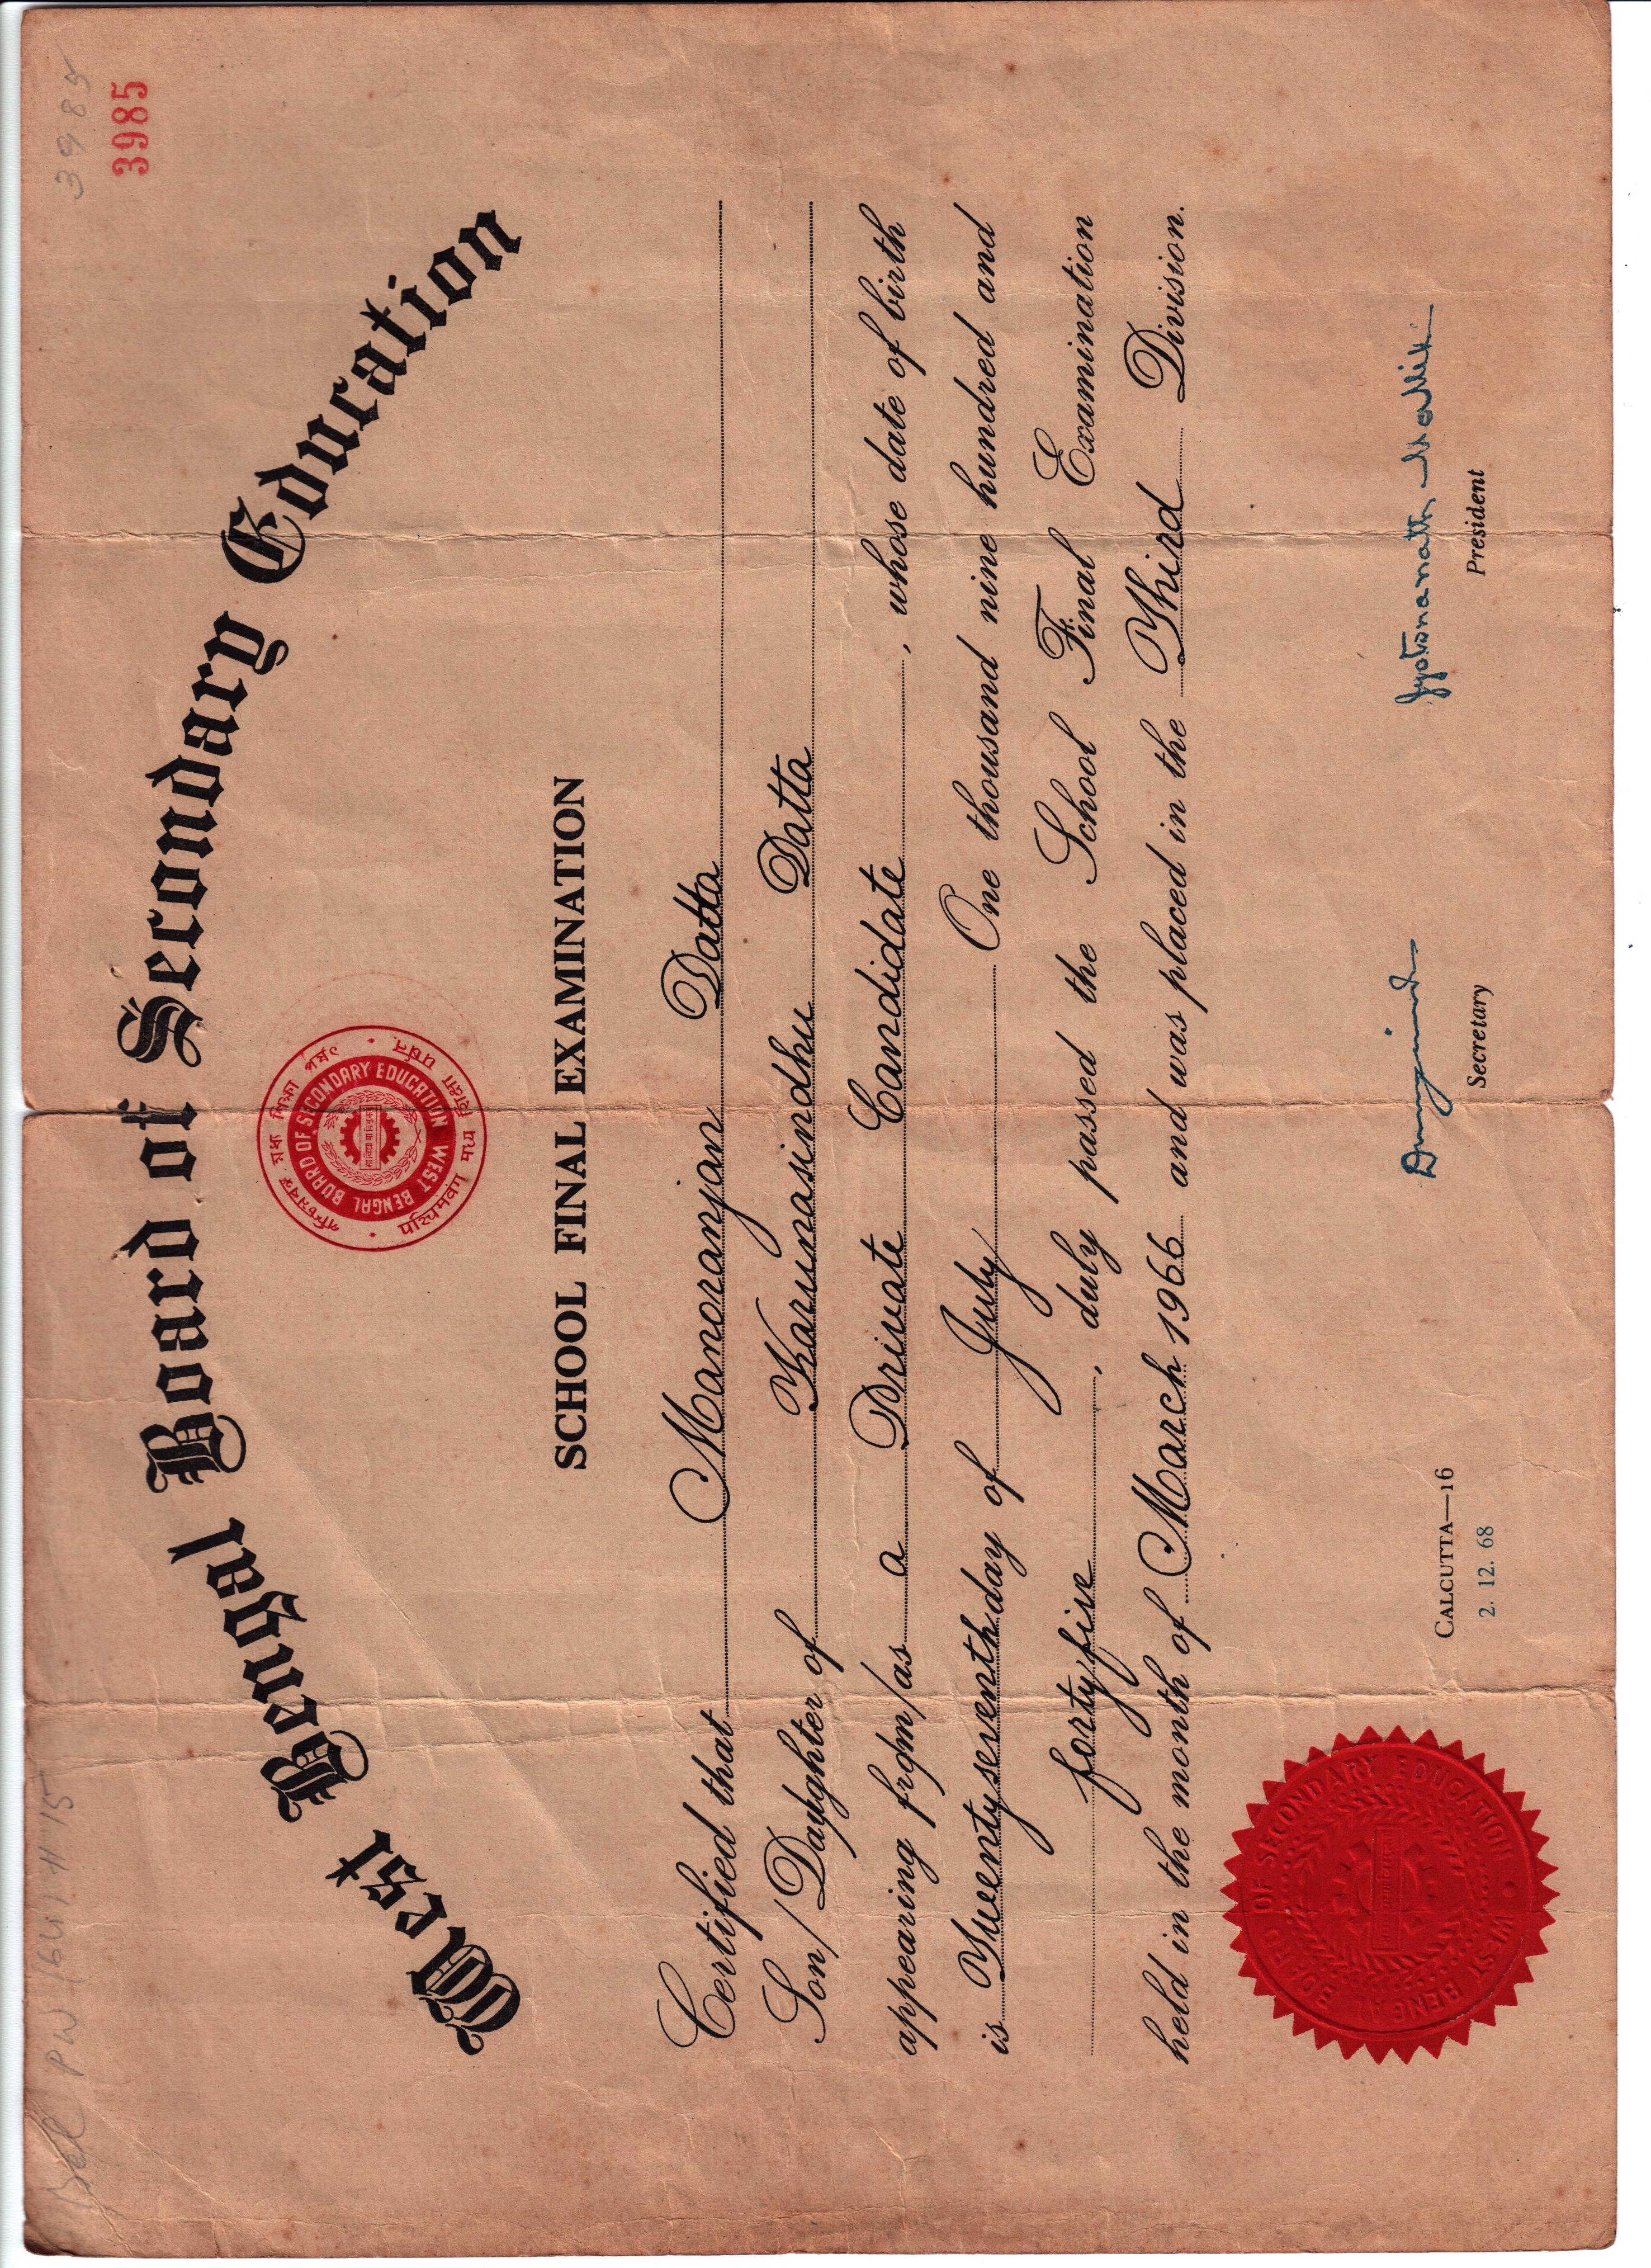 3985
3985
West Bengal Board of Secondary Education
পশ্চিমবঙ্গ মধ্য শিক্ষা পর্ষৎ
WEST BENGAL BOARD OF SECONDARY EDUCATION
पश्चिमवंग मध्य शिक्षा पर्षत
SCHOOL FINAL EXAMINATION
Certified that Manoranjan Datta
Son/Daughter of Karunasindhu Datta
appearing from/as a Private Candidate, whose date of birth
is Twentyseventh day of July One thousand nine hundred and
forty five, duly passed the School Final Examination
held in the month of March 1966 and was placed in the Third Division.
WEST BENGAL BOARD OF SECONDARY EDUCATION
CALCUTTA—16
2. 12. 68
Secretary
Jyotsnanath Mallik
President